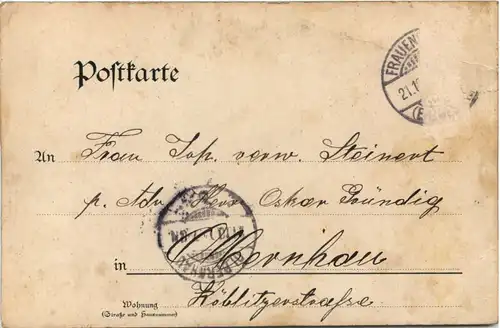 Postkarte
FRAUEN
21.1
An Frau Joh. verw. Steinert
p. Adr. Herr Oskar Gündig
in Olbernhau
Wohnung
(Straße und Hausnummer)
Röblitzerstraße.